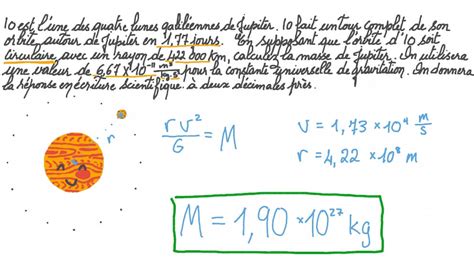 IO est l'une des quatre lunes galiléennes de Jupiter. IO fait un tour complet de son
orbite autour de Jupiter en 1,77 jours. En supposant que l'orbite d'IO soit
circulaire, avec un rayon de 422 000 km, calculez la masse de Jupiter. On utilisera
une valeur de 6,67 × 10⁻¹¹ m³/kg·s² pour la constante universelle de gravitation. On donnera
la réponse en écriture scientifique à deux décimales près.
r
r v²/G = M
v = 1,73 × 10⁴ m/s
r = 4,22 × 10⁸ m
M = 1,90 × 10²⁷ kg